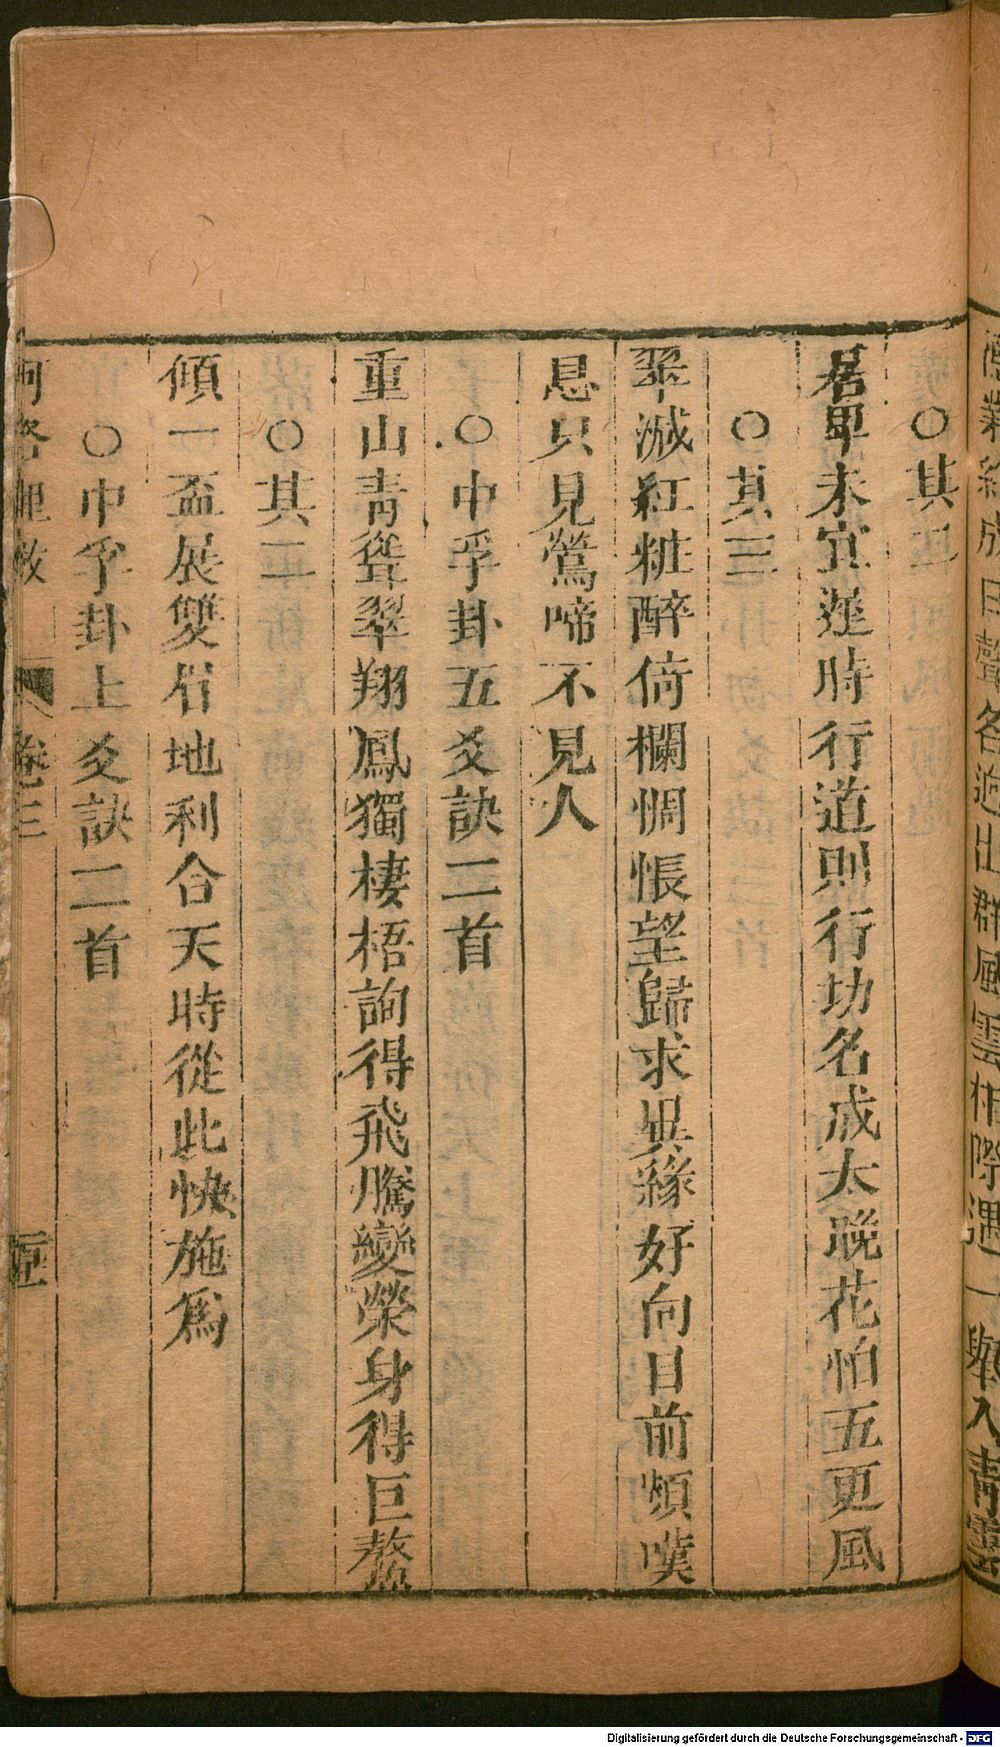 ○其二
居卑未宜遲時行道則行功名成太晚花怕五更風
○其三
翠減紅粧醉倚欄惆悵望歸求異緣好向目前煩嘆
息只見鶯啼不見人
○中孚卦五爻訣二首
重山青聳翠翔鳳獨棲梧詢得飛騰變榮身得巨鰲
○其二
傾一盃展雙眉地利合天時從此快施為
○中孚卦上爻訣二首
河洛理數 卷三
成日聲各逈出群風雲相際遇一舉入青雲
Digitalisierung gefördert durch die Deutsche Forschungsgemeinschaft - DFG